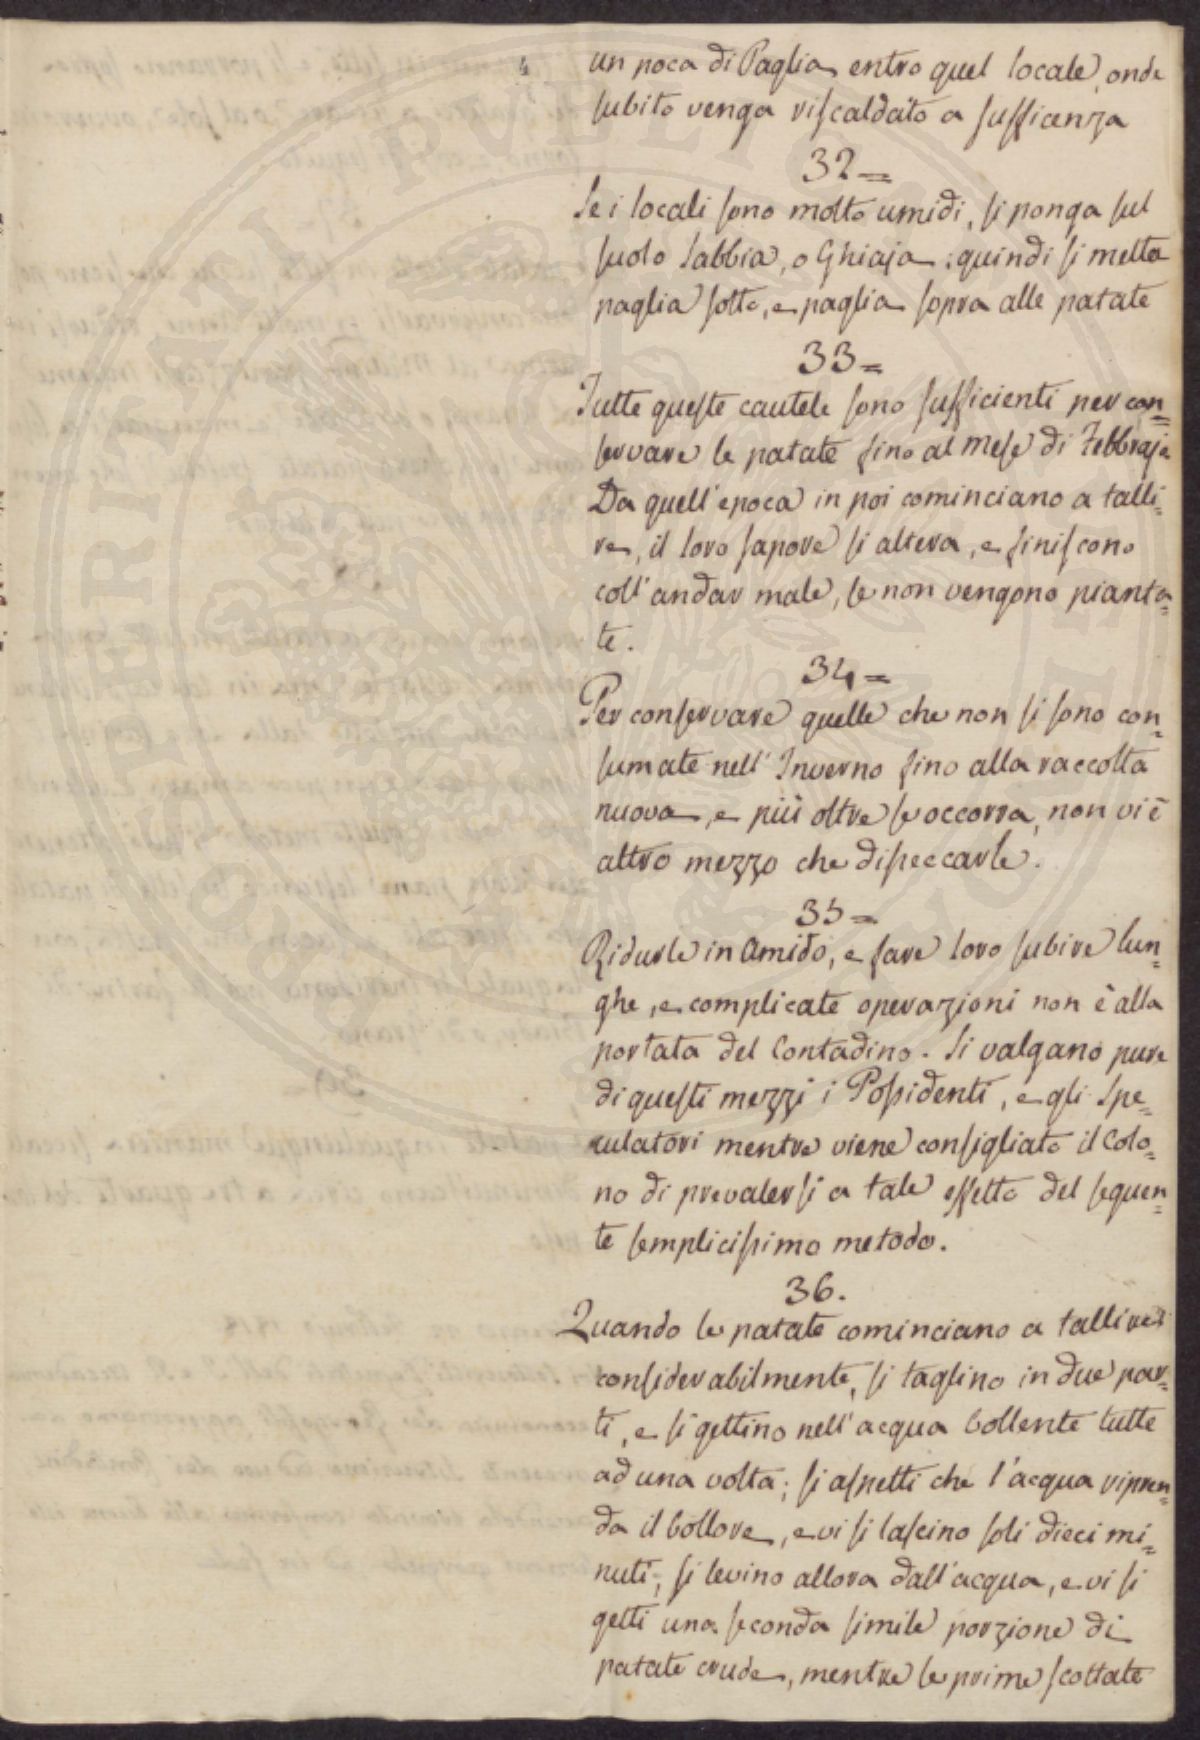 un poca di Paglia entro quel locale, onde
subito venga riscaldato a sufficenza
32=
Se i locali sono molto umidi, si ponga sul
suolo Sabbia, o Ghiaja: quindi si metta
paglia sotto, e paglia sopra alle patate
33=
Tutte queste cautele sono sufficienti per con=
servare le patate fino al Mese di Febbrajo
Da quell'epoca in poi cominciano a talli=
re, il loro sapore si altera, e finiscono
coll'andar male, se non vengono pianta=
te.
34=
Per conservare quelle che non si sono con=
sumate nell'Inverno fino alla raccolta
nuova, e più oltre se occorra, non vi è
altro mezzo che diseccarle.
35=
Ridurle in Amido, e fare loro subire lun=
ghe, e complicate operazioni non è alla
portata del Contadino. Si valgano pure
di questi mezzi i Possidenti, e gli Spe=
culatori mentre viene consigliato il Colo=
no di prevalersi a tale effetto del seguen=
te semplicissimo metodo.
36.
Quando le patate cominciano a tallire
considerabilmente, si taglino in due par=
ti, e si gettino nell'acqua bollente tutte
ad una volta; si aspetti che l'acqua ripren=
da il bollore, e vi si lascino soli dieci mi=
nuti; si levino allora dall'acqua, e vi si
getti una seconda simile porzione di
patate crude, mentre le prime scottate